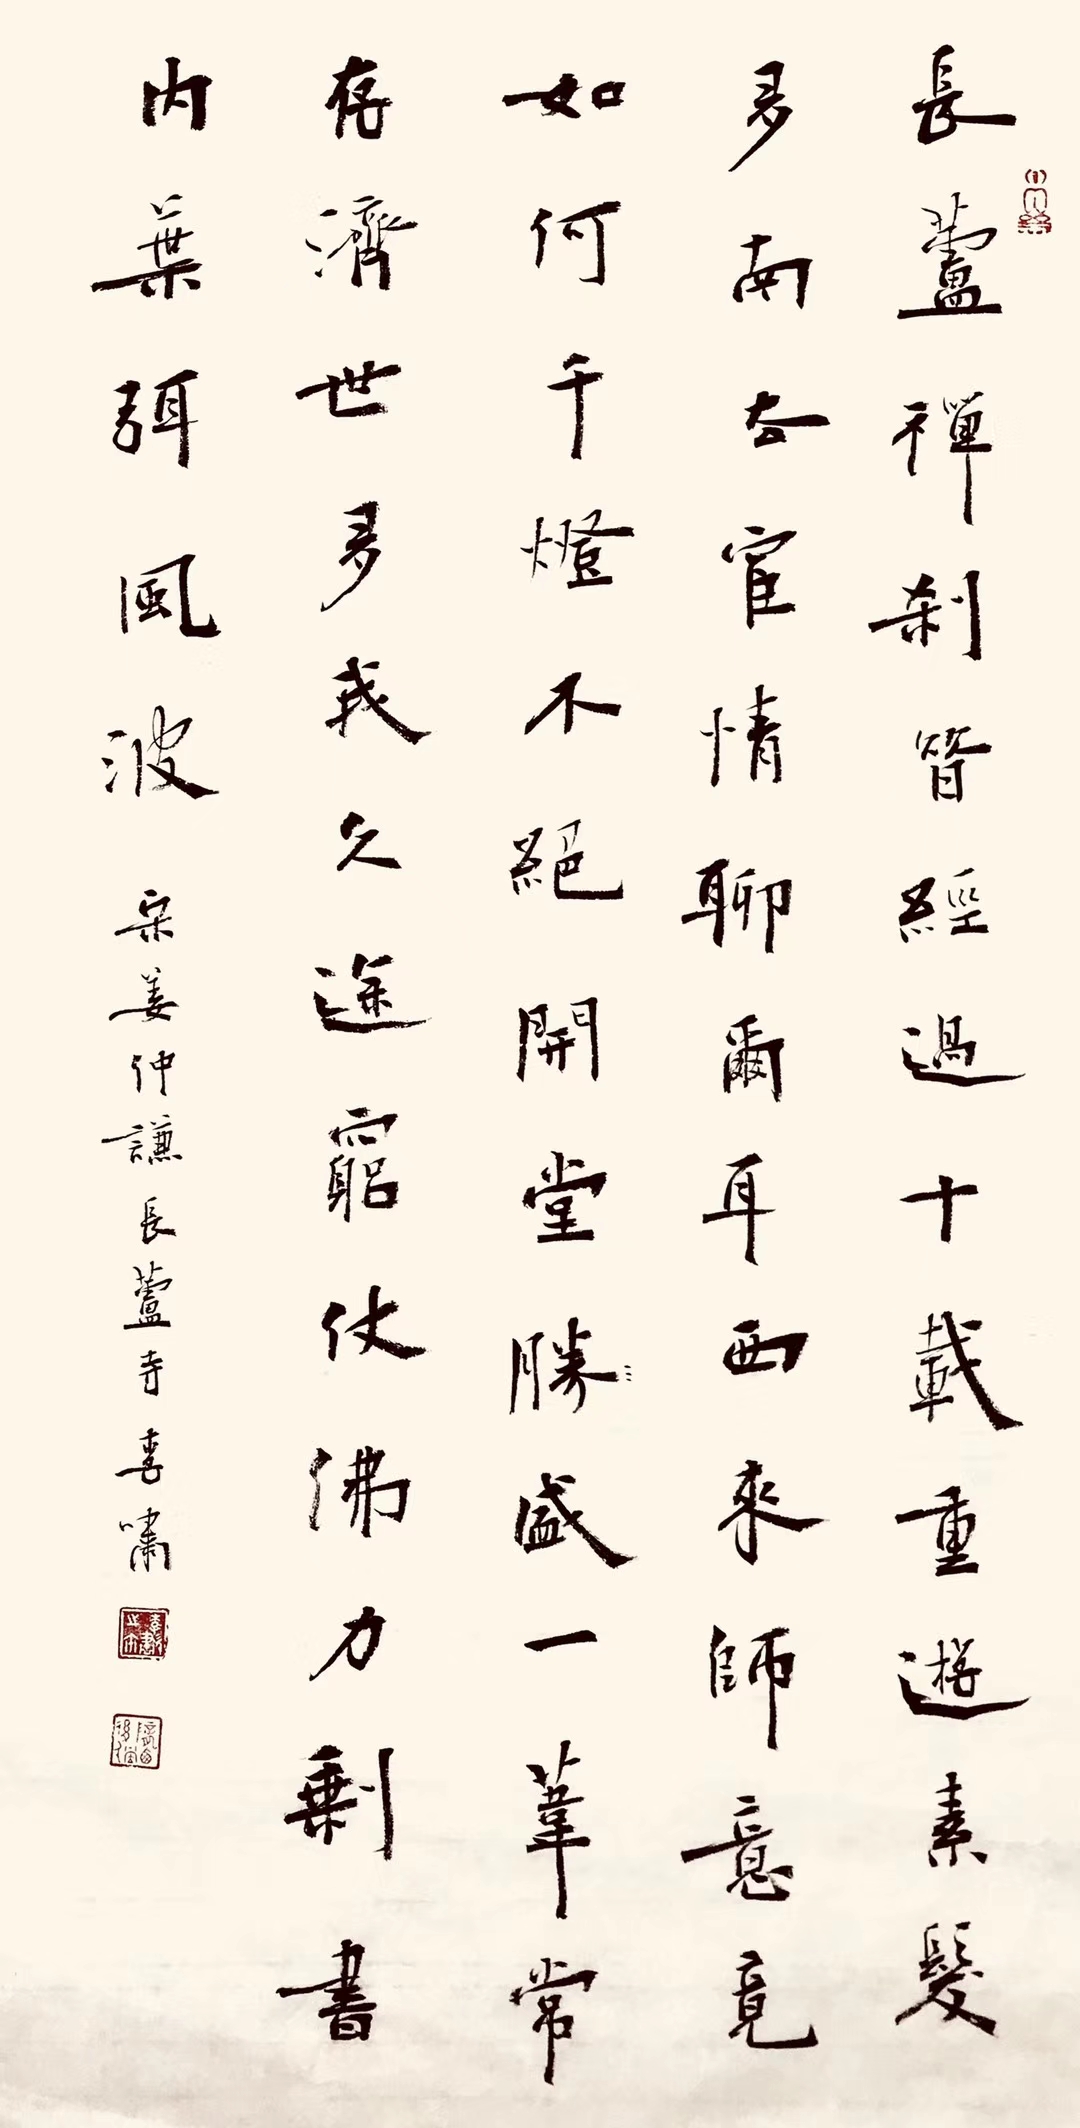 長蘆禪刹昔經過十載重遊素髮
多南去宦情聊爾耳西來師意竟
如何千燈不絕開堂勝盛一葦常
存濟世多我久途窮仗佛力剩書
内葉弭風波
宋姜仲謙長蘆寺李嘯